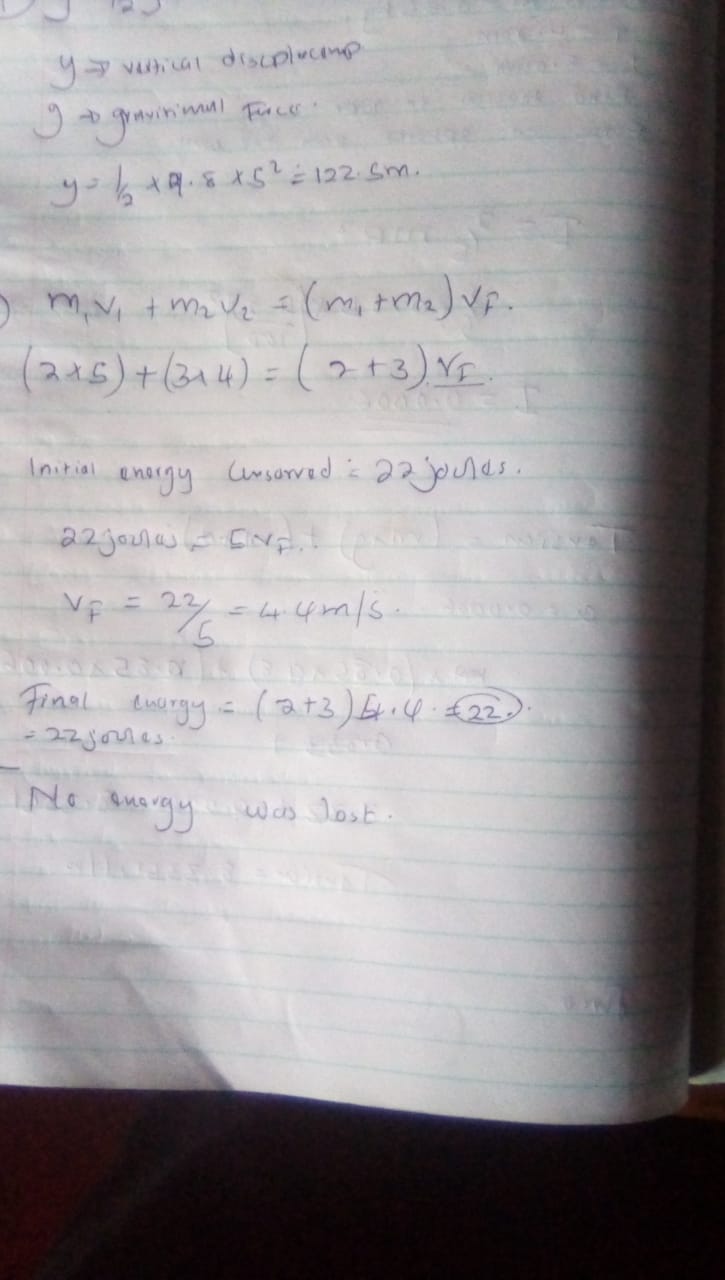 y → vertical discplacemp
g → gravirimal Force.
y = 1/2 x 9.8 x 5² = 122.5m.
) m₁v₁ + m₂v₂ = (m₁ + m₂) VF.
(2x5) + (3x4) = (2+3) VF.
Initial energy Consorved = 22 joules.
22 joules = 5VF.
VF = 22/5 = 4.4 m/s.
Final energy = (2+3) 4.4 = 22.
= 22 joules.
No energy was lost.